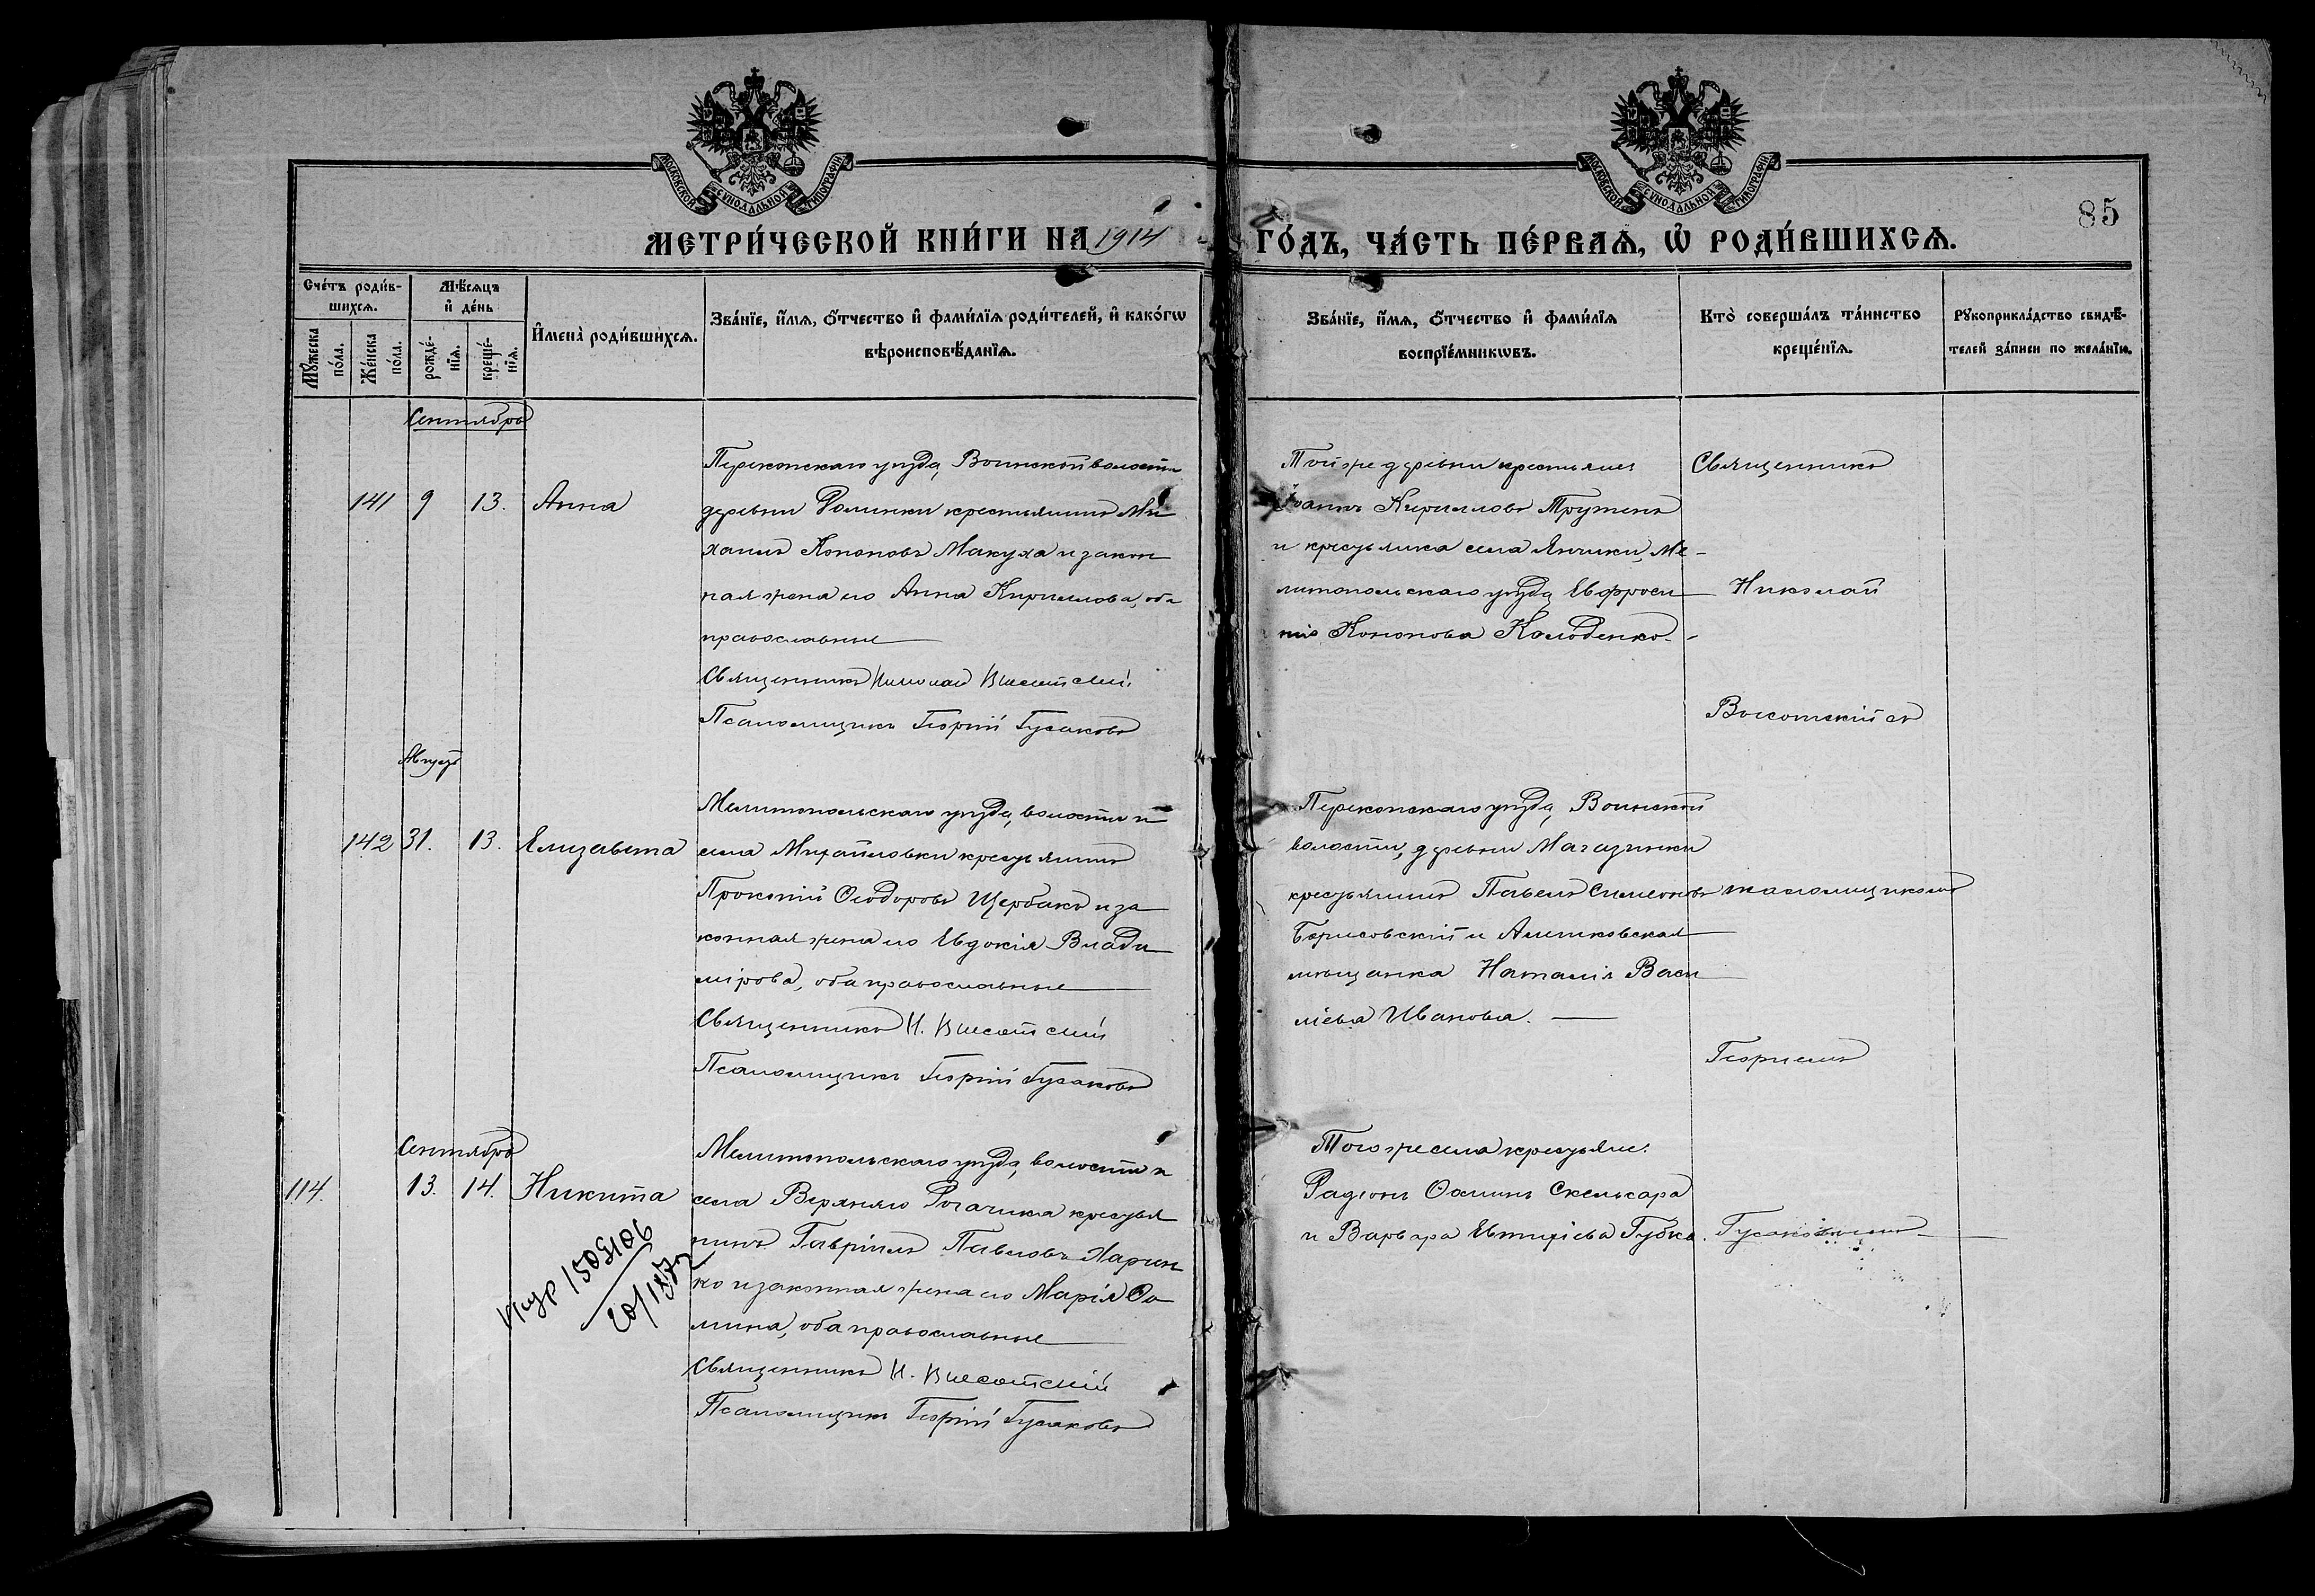 МОСКОВСКОЙ СѴНОДАЛЬНОЙ ТИПОГРАФІИ
МОСКОВСКОЙ СѴНОДАЛЬНОЙ ТИПОГРАФІИ
85
МЕТРИ́ЧЕСКОЙ КНИ́ГИ НА 1914 ГО́ДЪ, ЧА́СТЬ ПЕ́РВАѦ, Ѿ РОДИ́ВШИХСѦ.
Сче́тъ роди́в-
шихсѧ.
Мѣ́сѧцъ
и҆ де́нь
Мꙋ́жеска
по́ла.
Же́нска
по́ла.
рожде́-
нїѧ.
креще́-
нїѧ.
И҆мена̀ роди́вшихсѧ.
Зва́нїе, и҆́мѧ, ѻ҆́тчество и҆ фами́лїѧ роди́телей, и҆ како́гѡ
вѣроисповѣ́данїѧ.
Зва́нїе, и҆́мѧ, ѻ҆́тчество и҆ фами́лїѧ
воспрїе́мникѡвъ.
Кто̀ соверша́лъ та́инство
креще́нїѧ.
Рꙋкоприкла́дство свидѣ́-
телей за́писи по жела́нїю.
Сентябрь
141 9 13. Анна
Перекопскаго уѣзда, Воинской волости
деревни крестьянинъ Ми
хаилъ Кононовъ Макуха и закон
ная жена его Анна Кириллова, оба
православные
Священникъ Николай Высотскій
Псаломщикъ Георгій Гусаковъ
Той же деревни крестьяне
Іоаннъ Кирилловъ Трутень
и крестьянка села Янчики, Ме-
литопольскаго уѣзда Евфроси
нія Кононова Колоденко
Священникъ
Николай
Высотскій съ
Августъ
142 31. 13. Елизавета
Мелитопольскаго уѣзда, волости и
села Михайловки крестьянинъ
Прокопій Ѳеодоровъ Щербакъ и за
конная жена его Евдокія Влади
мірова, оба православные
Священникъ Н. Высотскій
Псаломщикъ Георгій Гусаковъ
Перекопскаго уѣзда, Воинской
волости, деревни Магазинки
крестьянинъ Павелъ Симеоновъ
Борисовскій и Алешковская
мѣщанка Наталія Васи
ліева Иванова.
псаломщикомъ
Георгіемъ
Сентябрь
114. 13. 14. Никита
1503106
20/1872
Мелитопольскаго уѣзда, волости и
села Верхняго Рогачика крестья
нинъ Гавріилъ Павловъ Харчен
ко и законная жена его Марія Ѳо
мина, оба православные
Священникъ Н. Высотскій
Псаломщикъ Георгій Гусаковъ
Того же села крестьяне:
Радіонъ Ѳоминъ
и Варвара Евтихіева Губка.
Гусаковымъ